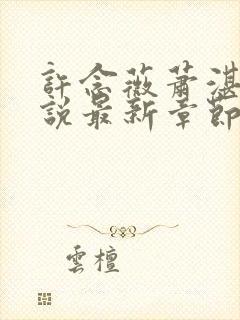 許念薇蕭湛
說最新章節
雲檀